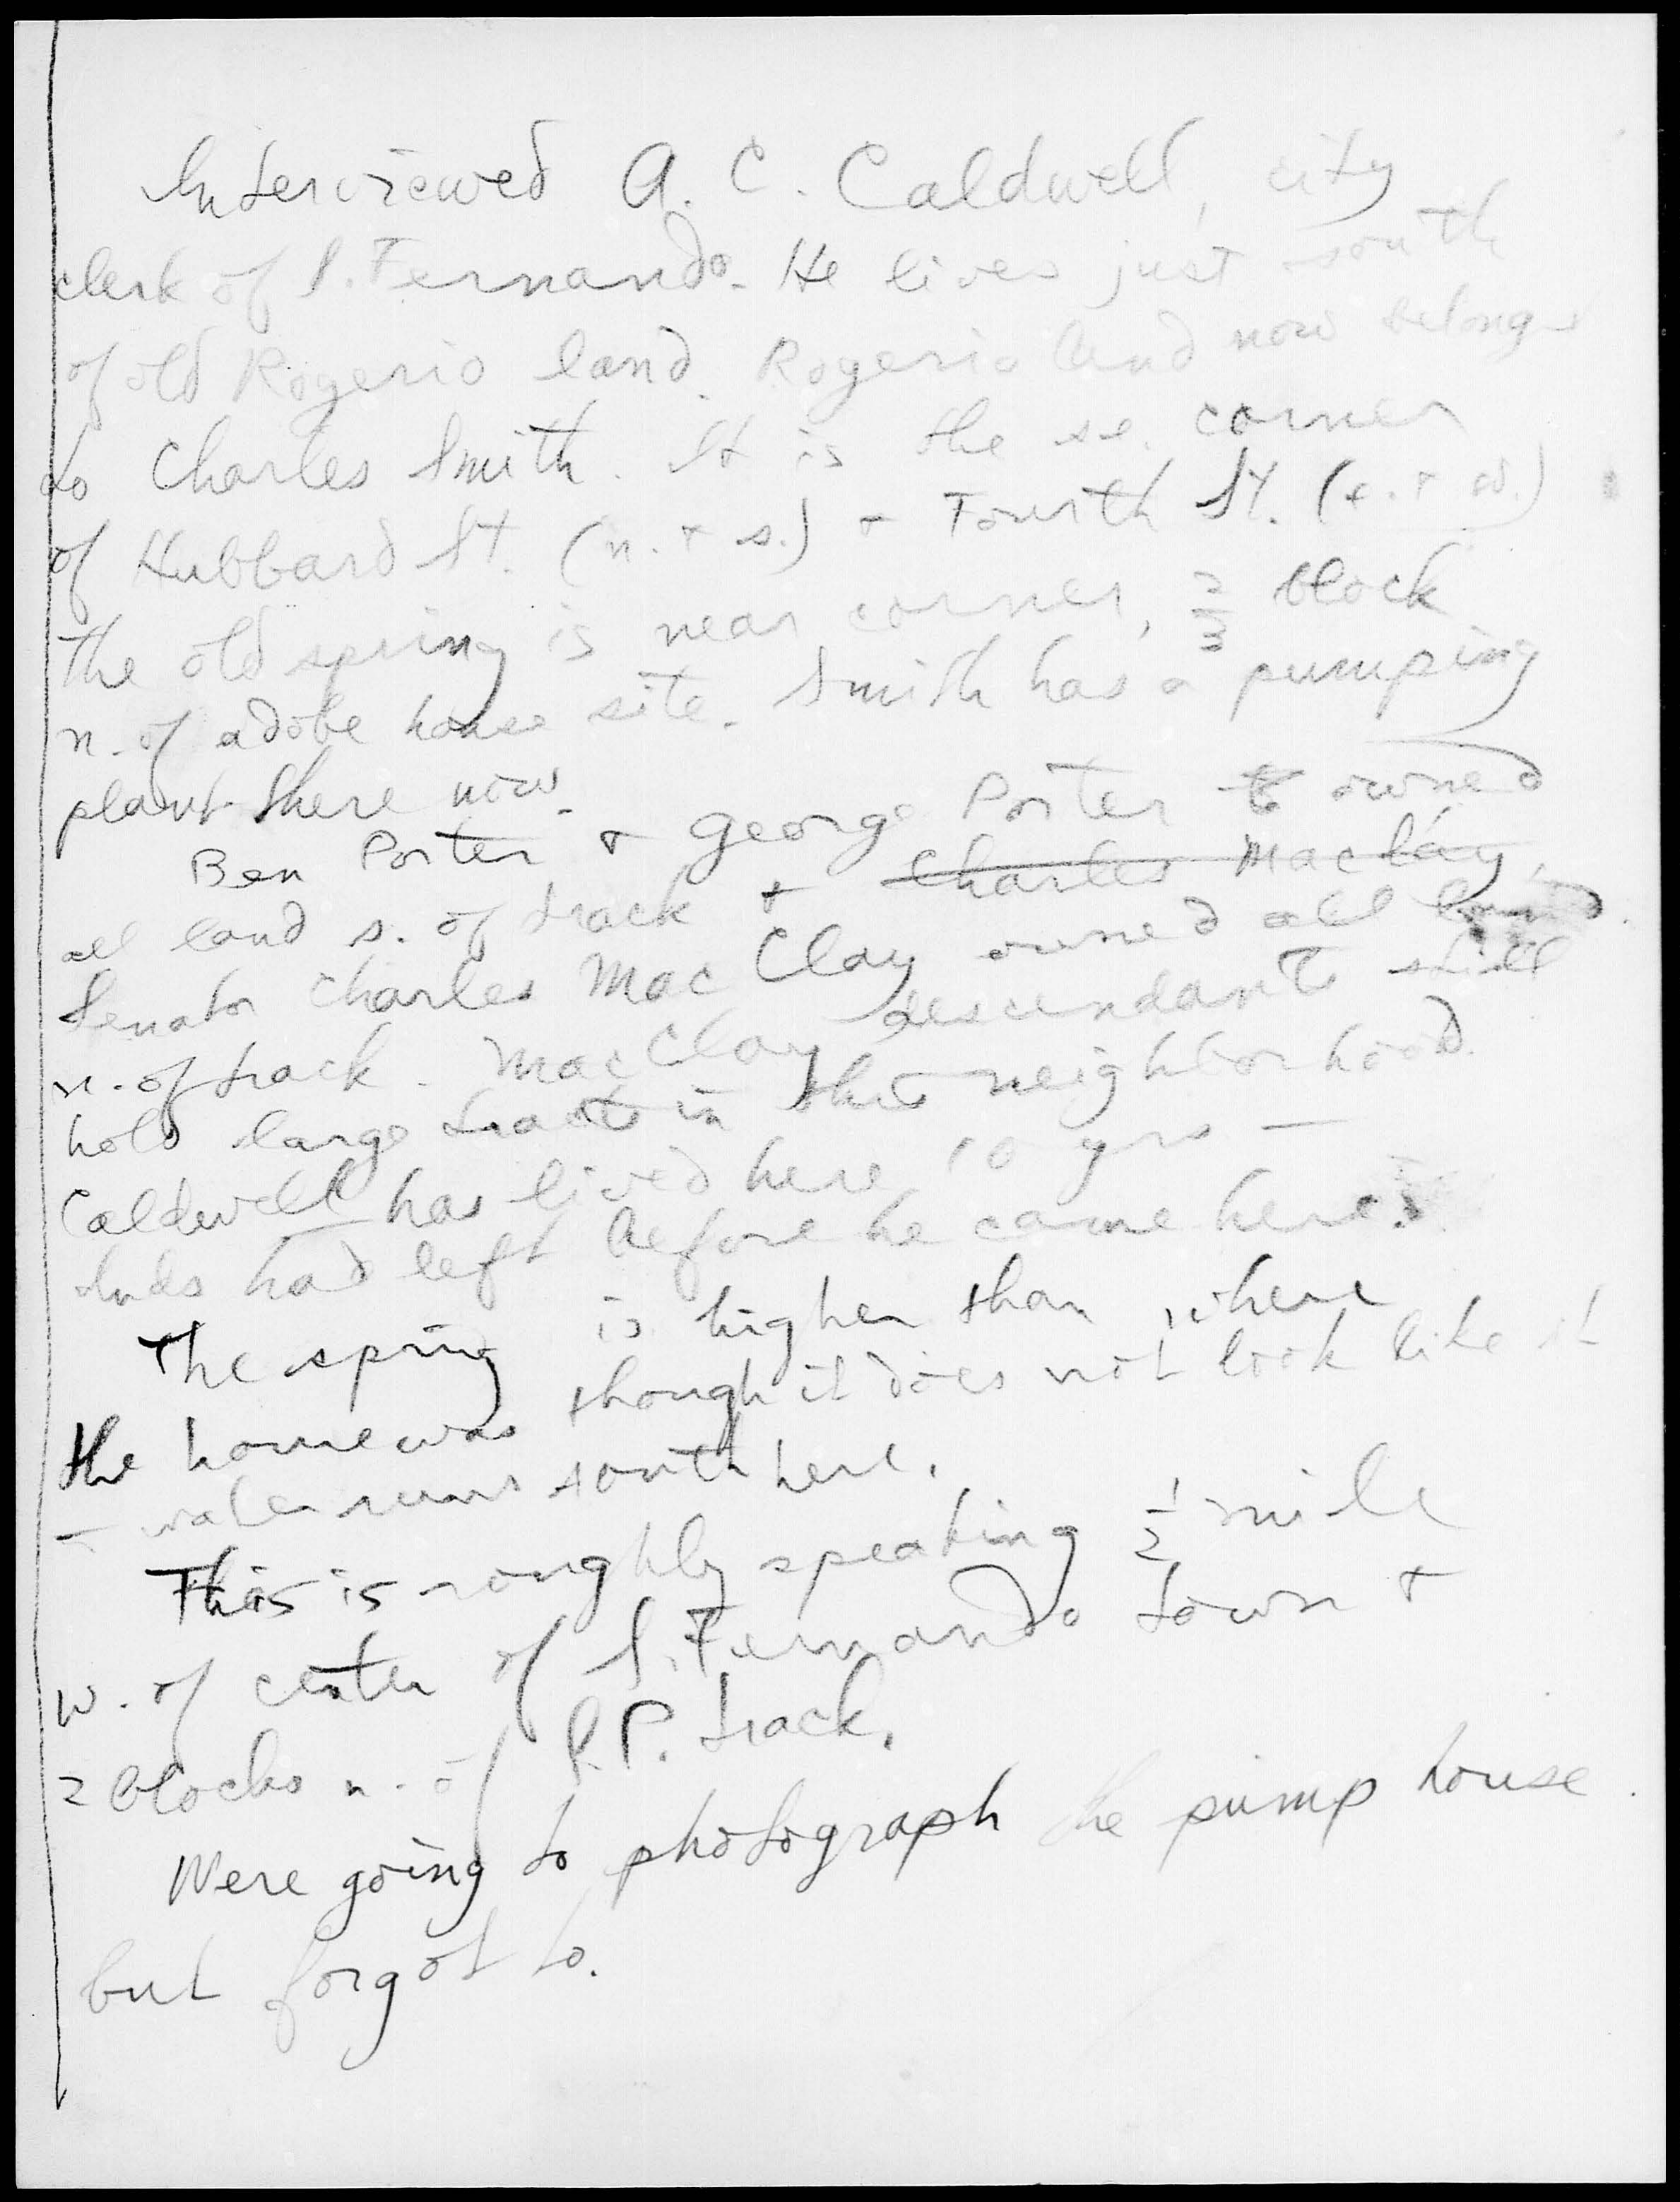 Interviewed A. C. Caldwell, city
clerk of S. Fernando. He lives just south
of old Rogerio land. Rogerio land now belongs
to Charles Smith. It is the se. corner
of Hubbard St. (n. + s.) + Fourth St. (e. + w.)
The old spring is near corner, 2/3 block
n. of adobe house site. Smith has a pumping
plant there now.
Ben Porter + George Porter to owned
all land s. of track + Charles Maclay,
Senator Charles MacClay owned all land
n. of track. MacClay descendants still
hold large tracts in this neighborhood.
Caldwell has lived here 10 yrs —
Inds had left before he came here.
The spring is higher than where
the home was though it does not look like it
— water runs south here.
This is roughly speaking 1/2 mile
w. of center of S. Fernando town +
2 blocks n. of S.P. track.
Were going to photograph the pump house
but forgot to.